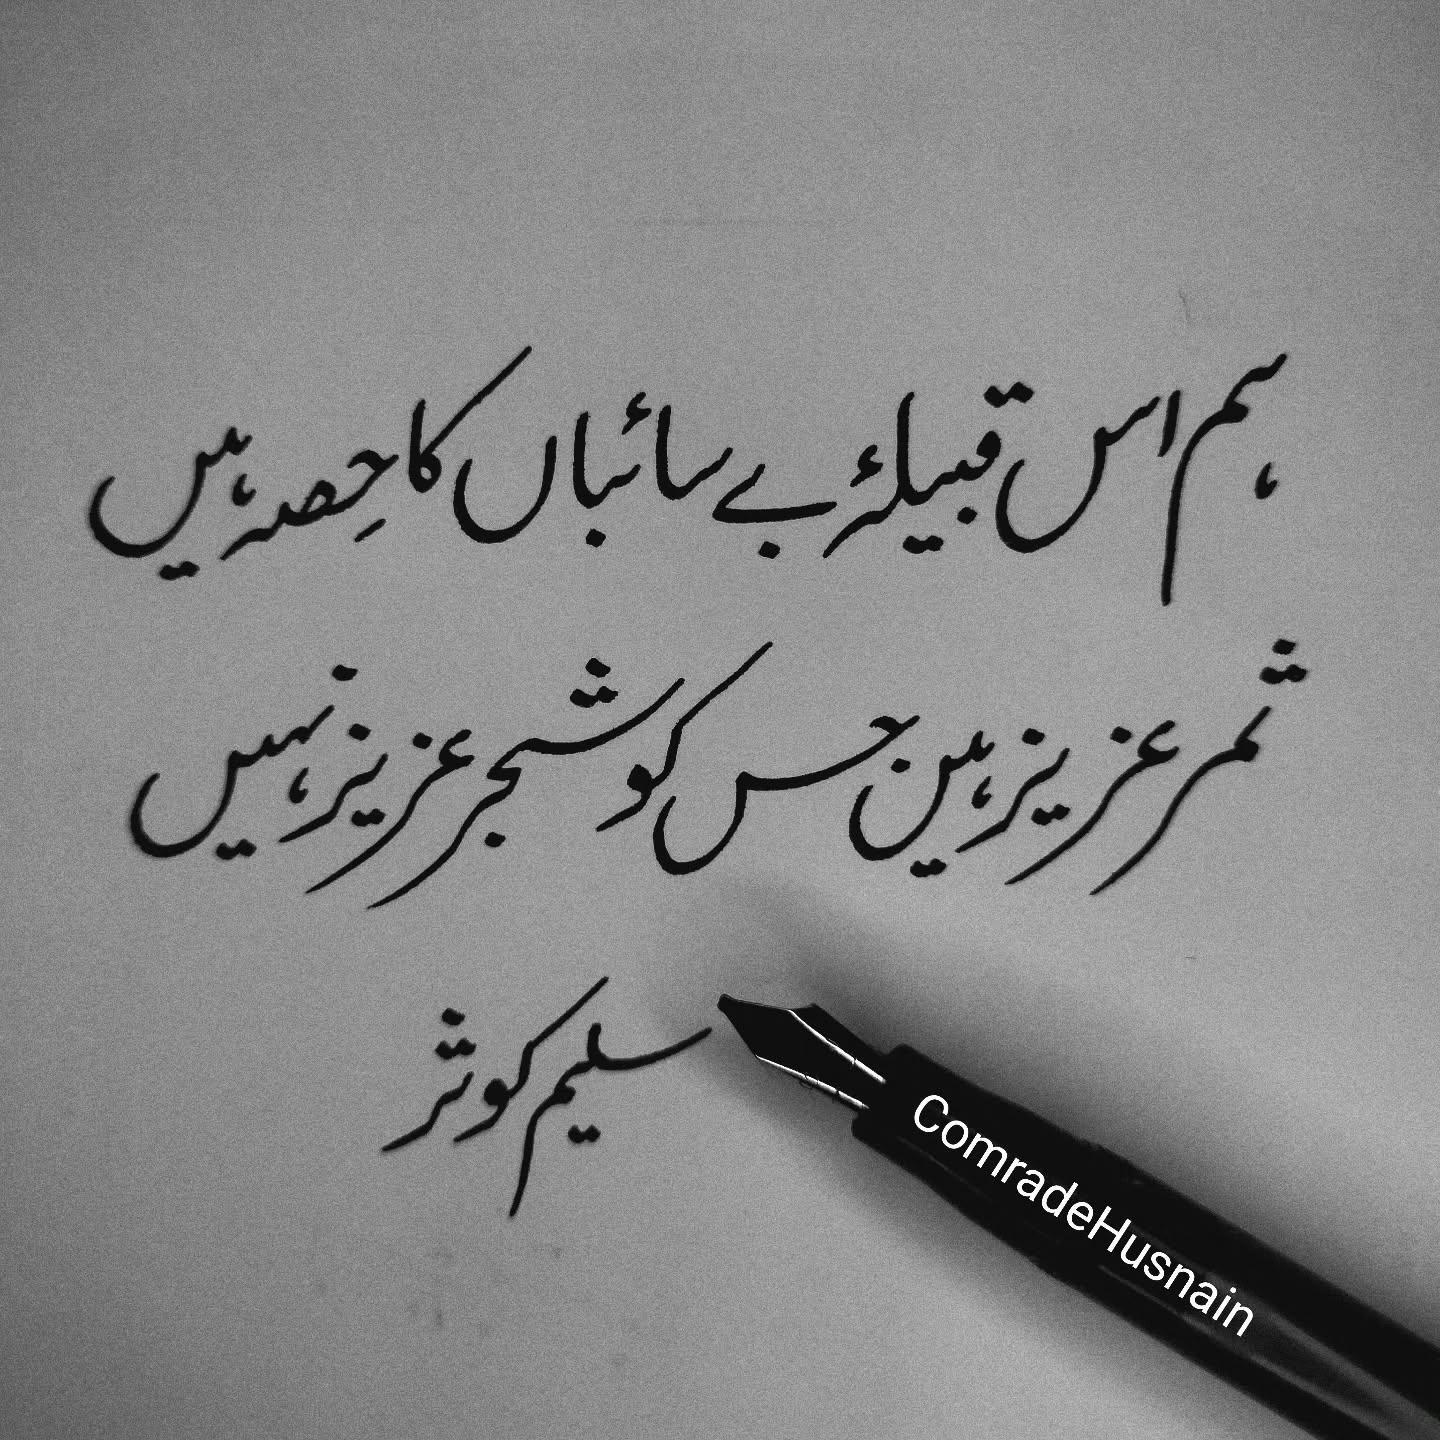 ہم اس قبیلۂ بے سائباں کا حِصہ ہیں
ثمر عزیز ہیں جس کو شجر عزیز نہیں
سلیم کوثر
ComradeHusnain